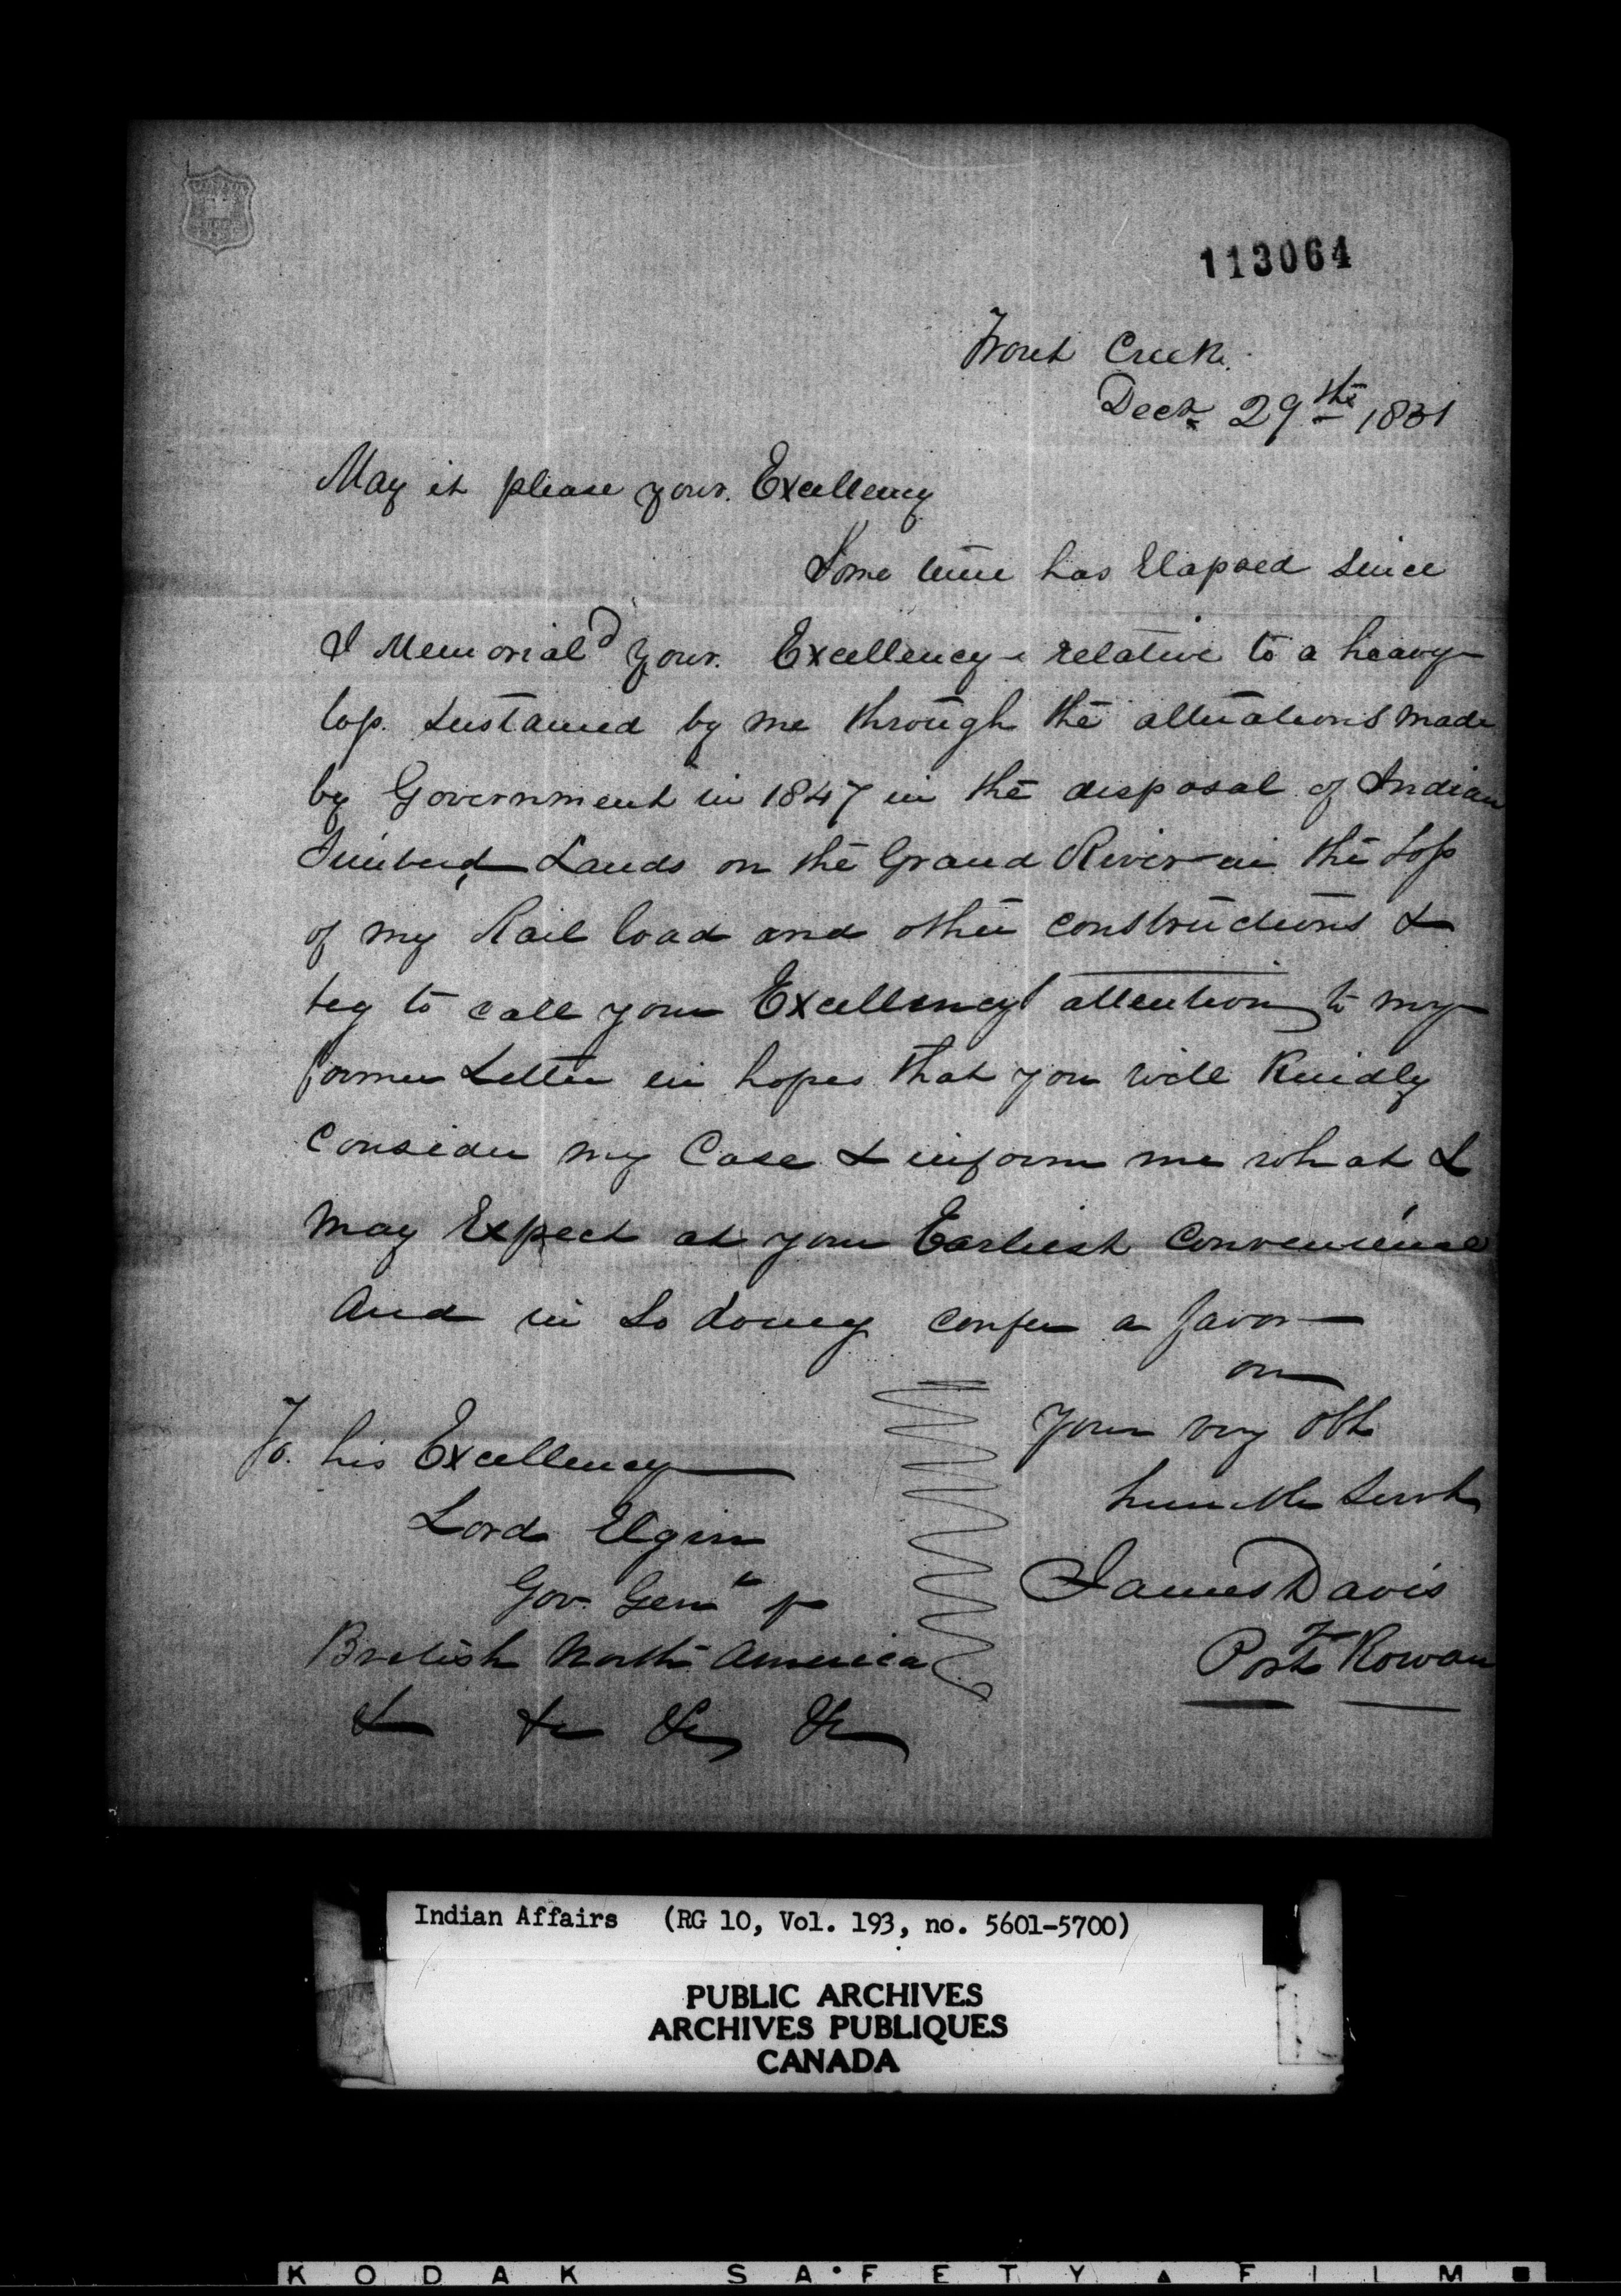 113064
Trout Creek.
Decr. 29th 1851
May it please your Excellency
Some time has Elapsed Since
I Memorial'd your Excellency relative to a heavy
loss Sustained by me through the alterations made
by Government in 1847 in the disposal of Indian
Timber'd Lands on the Grand River in the Loss
of my Rail Road and other constructions &
beg to call your Excellency attention to my
former Letter in hopes that you will Kindly
Consider my Case & inform me what I
may Expect at your Earliest Convenience
And in So doing confer a favor
on
Your very Obt
humble Servt
James Davis
Port Rowan
To. his Excellency
Lord Elgin
Gov. Genl of
British North America
& &c &c &c
Indian Affairs (RG 10, Vol. 193, no. 5601-5700)
PUBLIC ARCHIVES
ARCHIVES PUBLIQUES
CANADA
KODAK SAFETY FILM